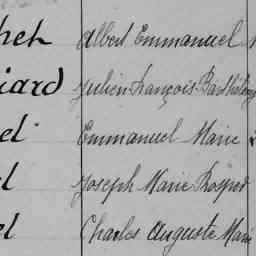 het Albert Emmanuel
iard Julien François Barthélemy
el Emmanuel Marie
el Joseph Marie Prosper
el Charles Auguste Marie